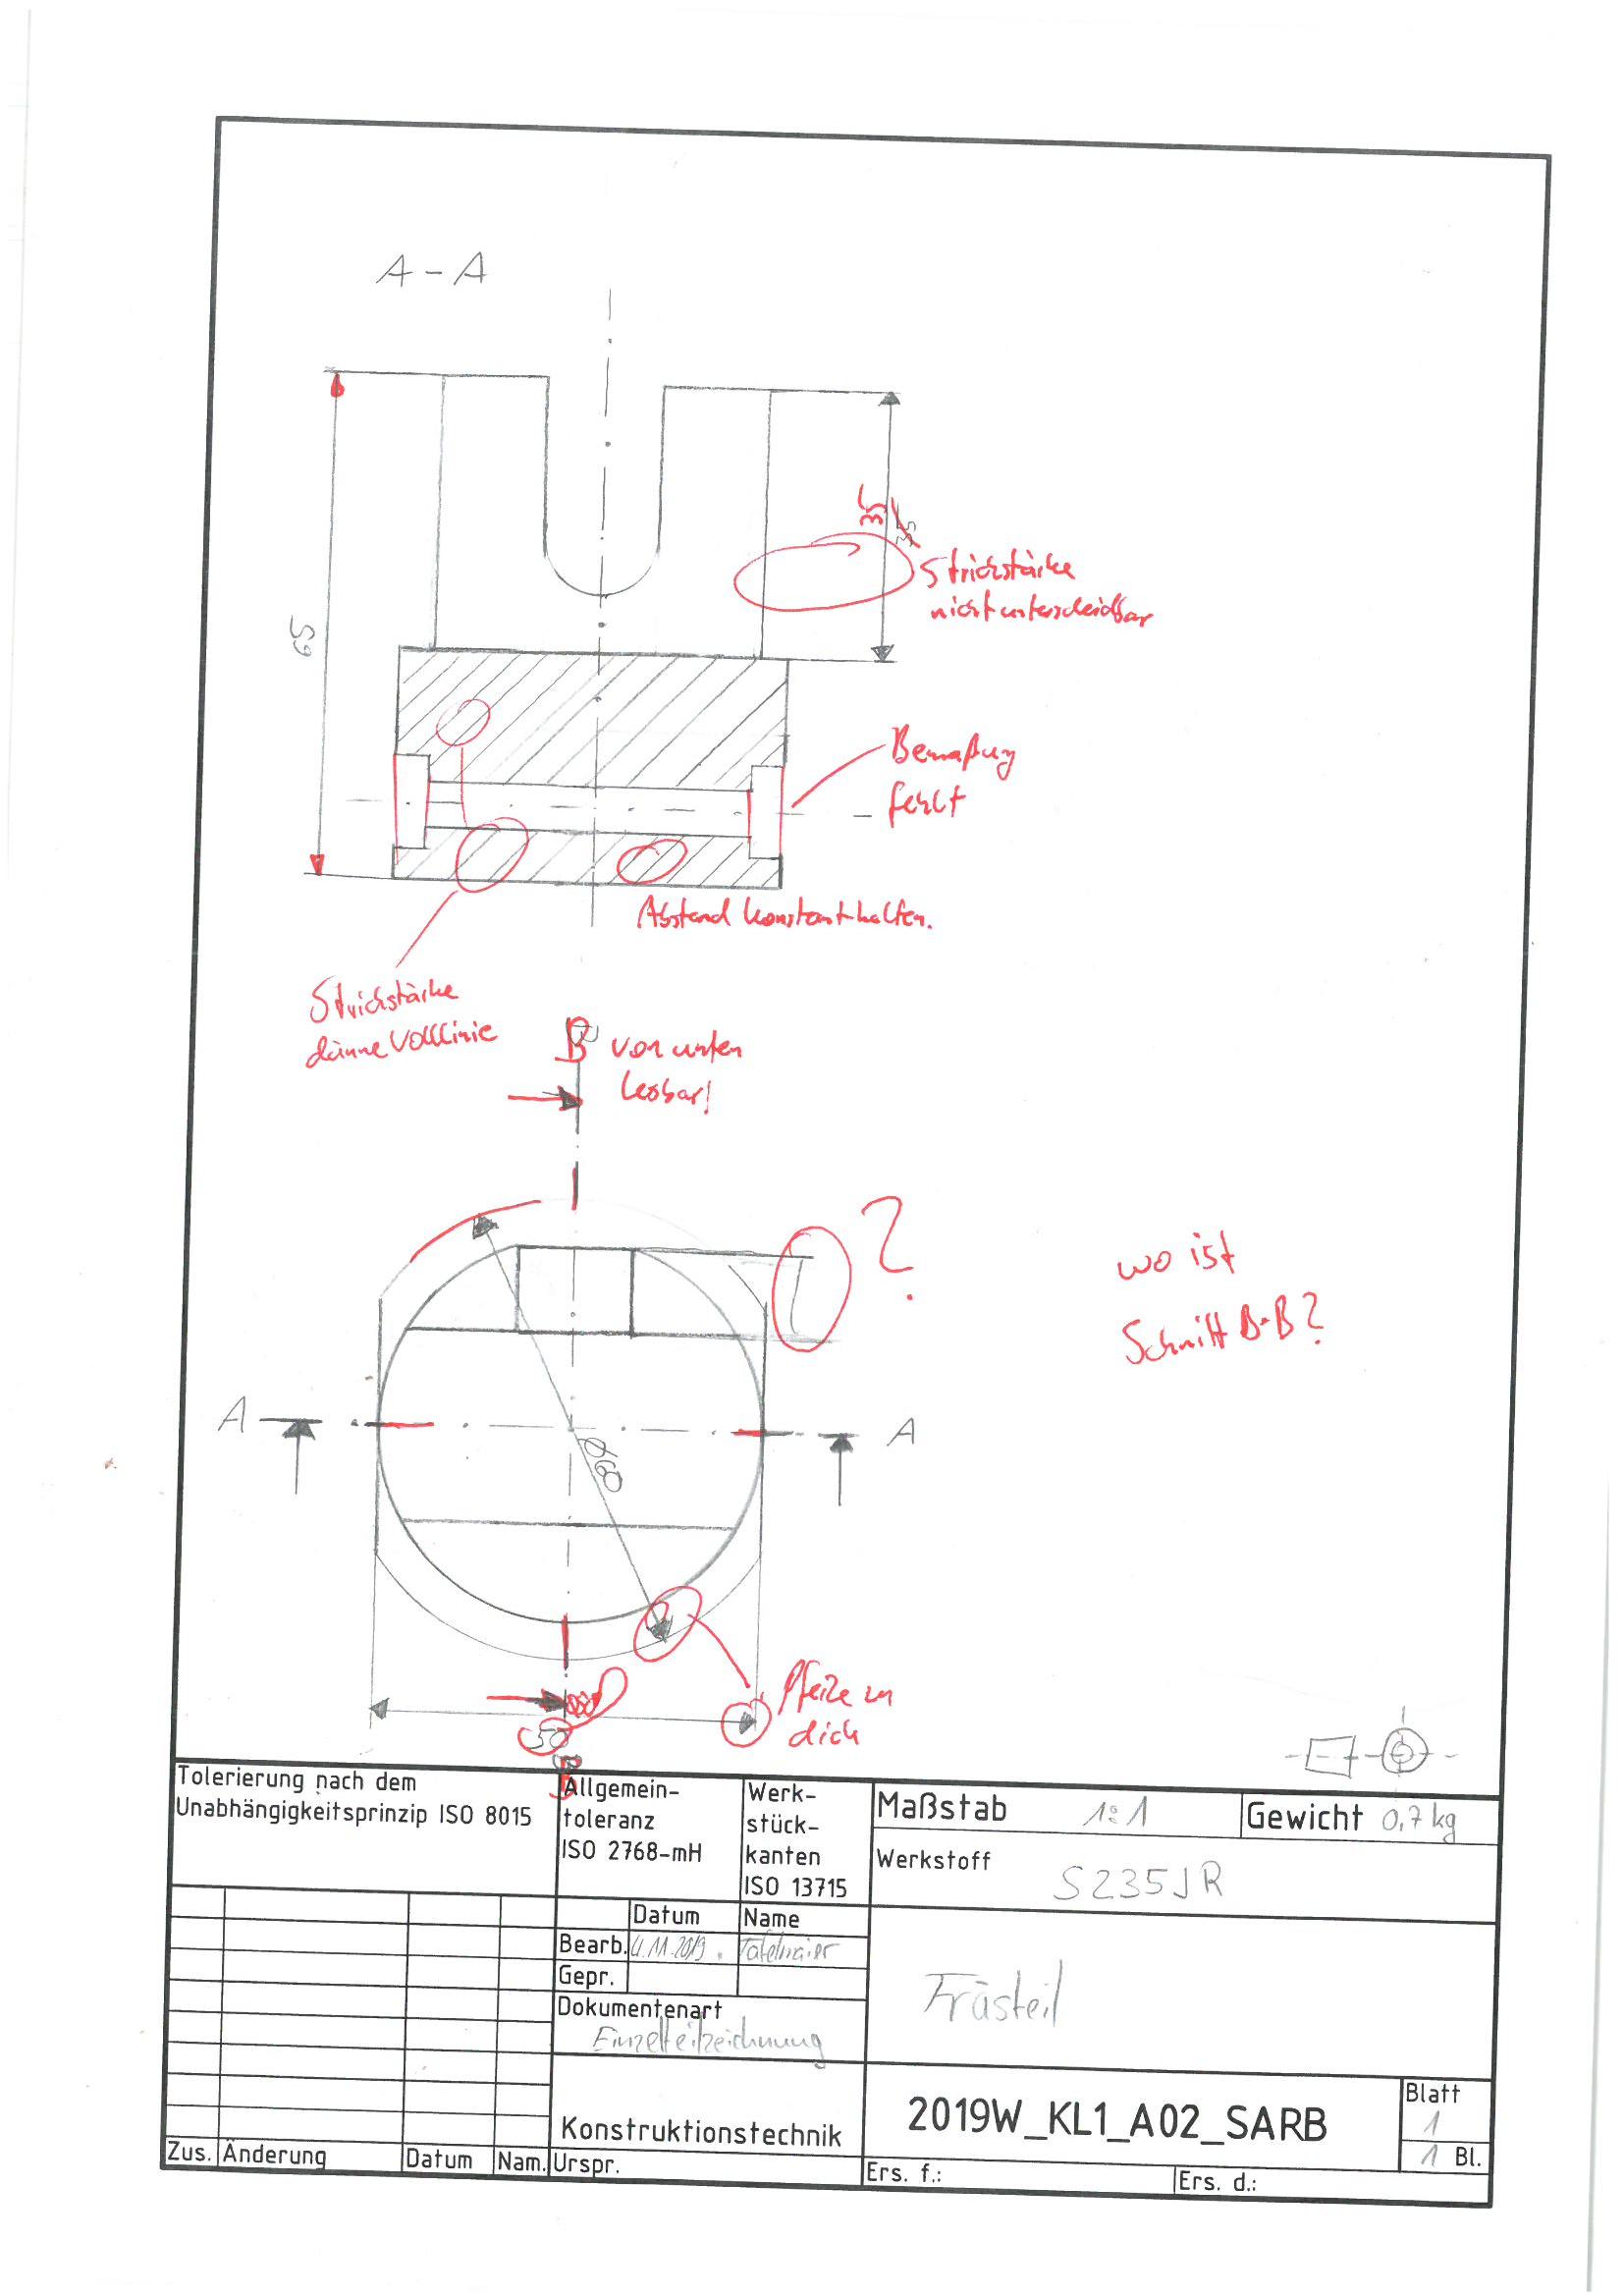 A-A
35
35
Strichstärke
nicht unterscheidbar
65
Bemaßung
fehlt
Abstand konstant halten.
Strichstärke
dünne Volllinie
B von unten
lesbar!
?
wo ist
Schnitt B-B?
A
A
Ø60
Pfeile zu
dick
50
B
Tolerierung nach dem
Unabhängigkeitsprinzip ISO 8015
Allgemein-
toleranz
ISO 2768-mH
Werk-
stück-
kanten
ISO 13715
Maßstab 1:1
Gewicht 0,7 kg
Werkstoff S235JR
Datum Name
Bearb. 4.11.2019 Tafelmaier
Gepr.
Dokumentenart
Einzelteilzeichnung
Frästeil
Konstruktionstechnik
2019W_KL1_A02_SARB
Blatt
1
1 Bl.
Zus. Änderung Datum Nam. Urspr. Ers. f.: Ers. d.: